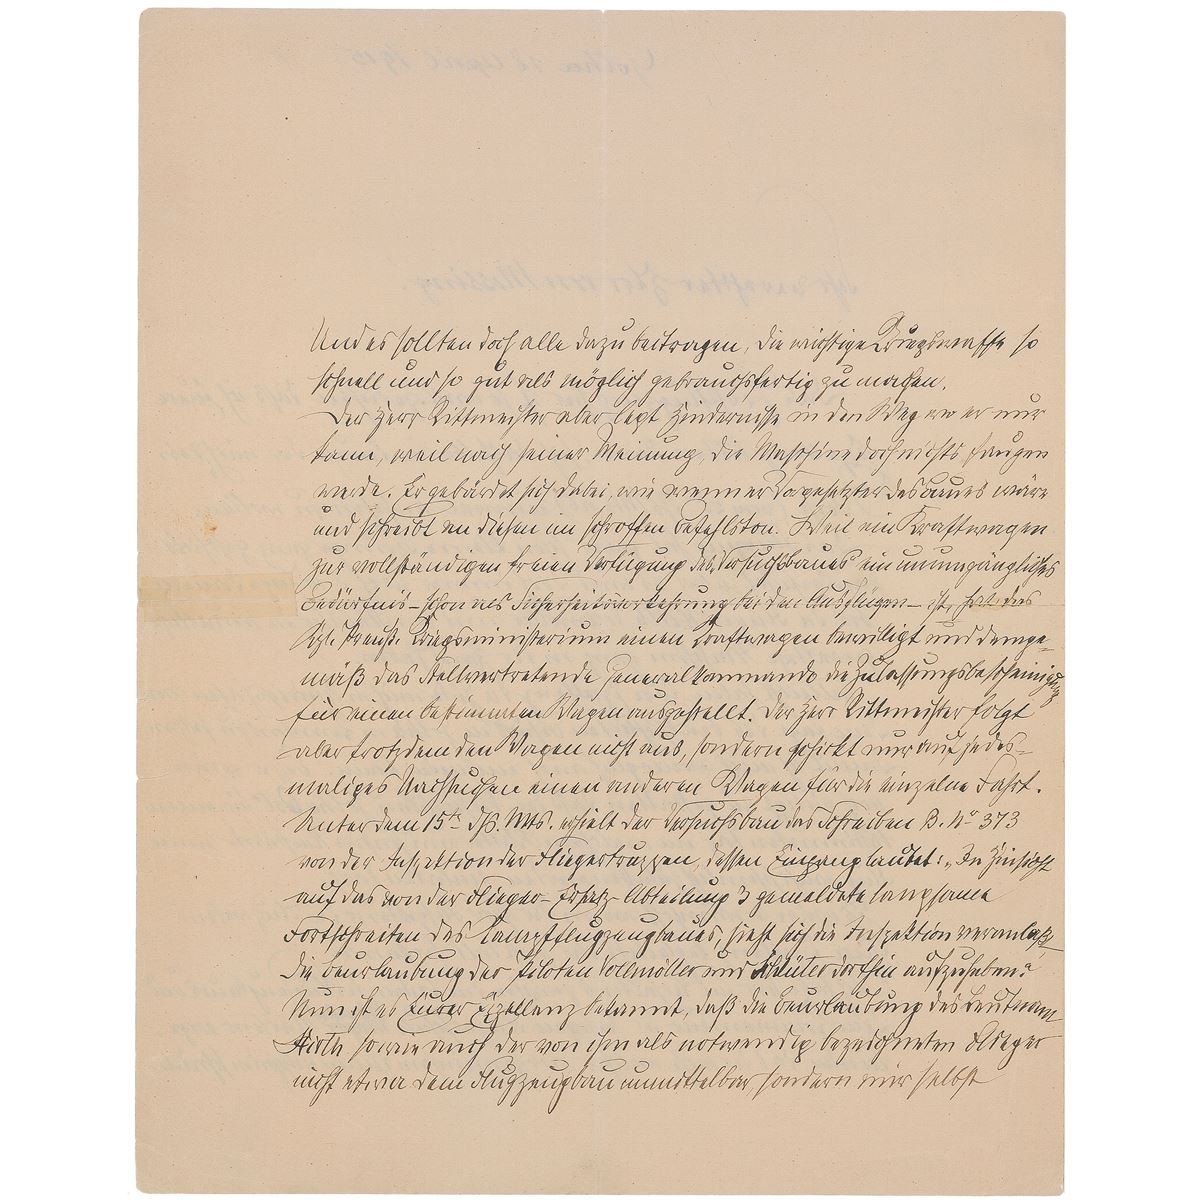 Und es sollten doch alle dazu beitragen, die wichtige Kriegswaffe so
schnell und so gut als möglich gebrauchsfertig zu machen.
Der Herr Rittmeister aber legt Hindernisse in den Weg wo er nur
kann, weil nach seiner Meinung, die Maschine doch nichts taugen
werde. Er gebärdet sich dabei, wie wenn er Vorgesetzter des Baues wäre
und schreibt an diesen im schroffen Befehlston. Weil ein Kraftwagen
zur vollständigen freien Verfügung des Versuchsbaues ein unumgängliches
Bedürfnis – schon als bei den Ausflügen – ist, hat das
Kgl. Preuß. Kriegsministerium einen Kraftwagen bewilligt und demge-
mäß das Stellvertretende Generalkommando die Zulassungsbescheinigung
für einen bestimmten Wagen ausgestellt. Der Herr Rittmeister folgt
aber trotzdem den Wagen nicht aus, sondern schickt nur auf jedes-
maliges Nachsuchen einen anderen Wagen für die einzelne Fahrt.
Unter dem 15ten ds. Mts. erhielt der Versuchsbau das Schreiben B. No 373
von der Inspektion der Fliegertruppen, dessen Eingang lautet: „In Hinsicht
auf das von der Flieger-Ersatz-Abteilung 3 gemeldete langsame
Fortschreiten des Kampfflugzeugbaues, sieht sich die Inspektion veranlaßt,
die Beurlaubung der Piloten Vollmöller und Schlüter dorthin aufzuheben."
Nun ist es Eurer Exzellenz bekannt, daß die Beurlaubung des Leutnant
Hirth sowie auch der von ihm als notwendig bezeichneten Flieger
nicht etwa dem Flugzeugbau unmittelbar, sondern mir selbst